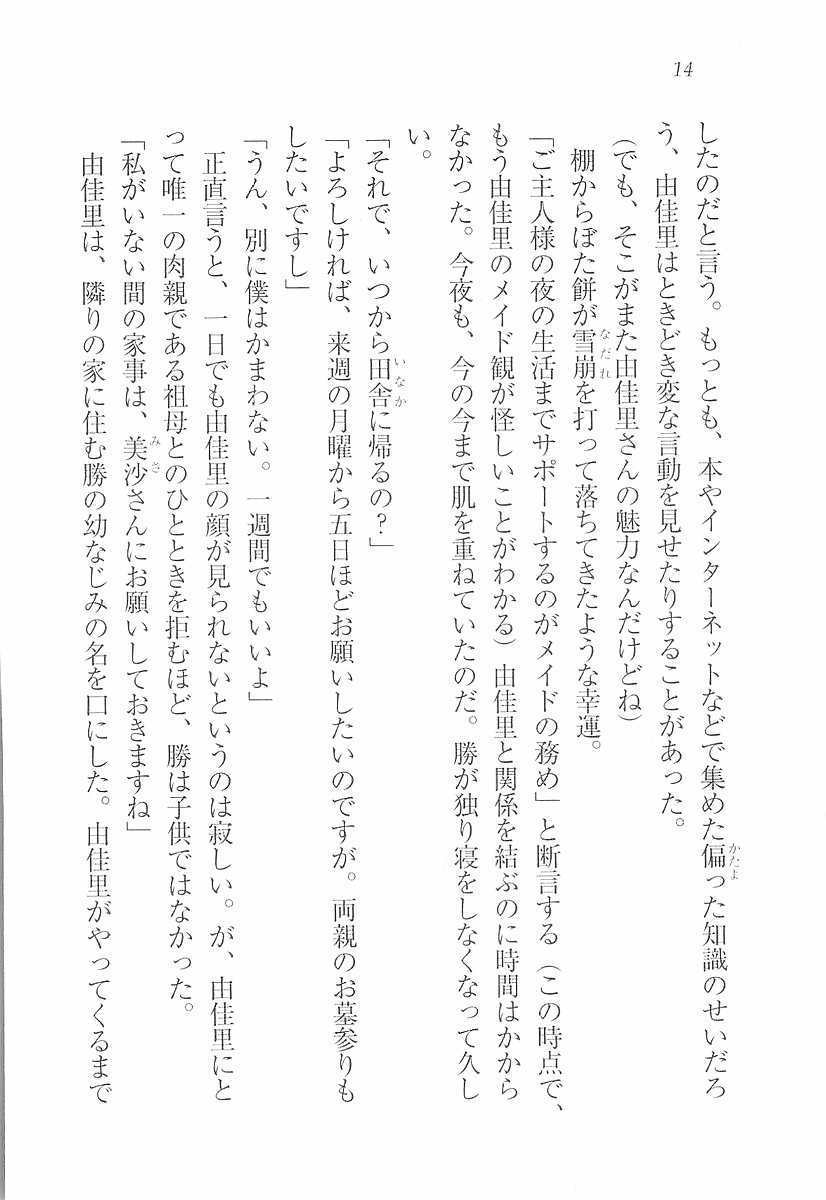 14
したのだと言う。もっとも、本やインターネットなどで集めた偏った知識のせいだろ
う、由佳里はときどき変な言動を見せたりすることがあった。
(でも、そこがまた由佳里さんの魅力なんだけどね)
棚からぼた餅が雪崩を打って落ちてきたような幸運。
「ご主人様の夜の生活までサポートするのがメイドの務め」と断言する(この時点で、
もう由佳里のメイド観が怪しいことがわかる)由佳里と関係を結ぶのに時間はかから
なかった。今夜も、今の今まで肌を重ねていたのだ。勝が独り寝をしなくなって久し
い。
「それで、いつから田舎に帰るの?」
「よろしければ、来週の月曜から五日ほどお願いしたいのですが。両親のお墓参りも
したいですし」
「うん、別に僕はかまわない。一週間でもいいよ」
正直言うと、一日でも由佳里の顔が見られないというのは寂しい。が、由佳里にと
って唯一の肉親である祖母とのひとときを拒むほど、勝は子供ではなかった。
「私がいない間の家事は、美沙さんにお願いしておきますね」
由佳里は、隣りの家に住む勝の幼なじみの名を口にした。由佳里がやってくるまで